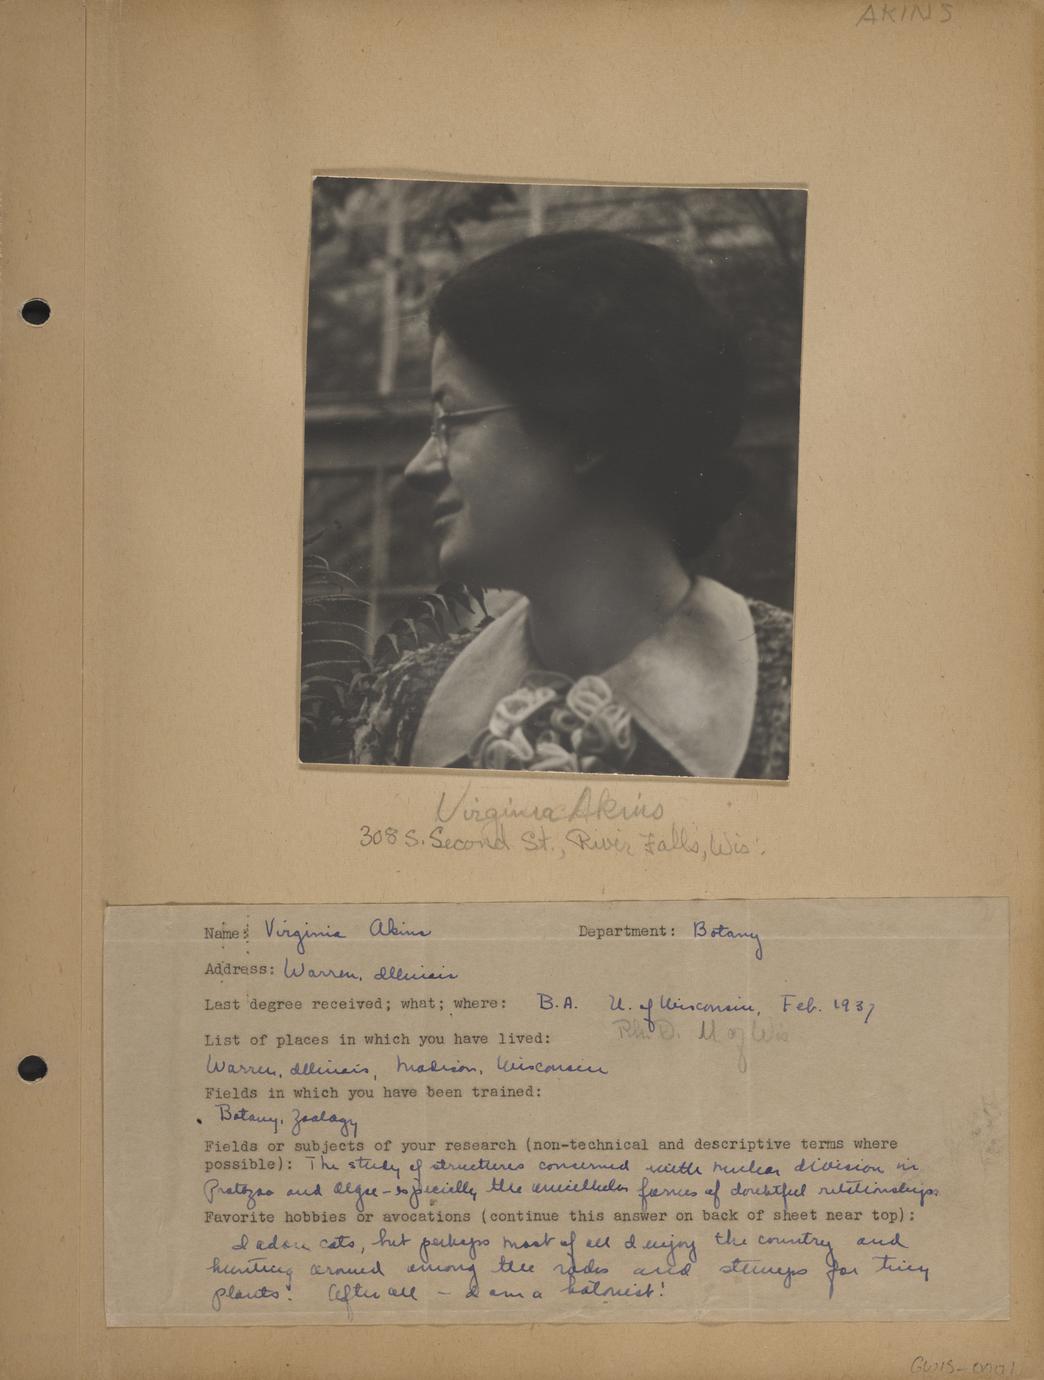 AKINS
Virginia Akins
308 S. Second St., River Falls, Wis.
Name: Virginia Akins Department: Botany
Address: Warren, Illinois
Last degree received; what; where: B.A. U. of Wisconsin, Feb. 1937
Ph.D. U of Wis
List of places in which you have lived:
Warren, Illinois, Madison, Wisconsin
Fields in which you have been trained:
Botany, Zoology
Fields or subjects of your research (non-technical and descriptive terms where
possible): The study of structures concerned with nuclear division in
Protozoa and Algae - especially the unicellular forms of doubtful relationships.
Favorite hobbies or avocations (continue this answer on back of sheet near top):
I adore cats, but perhaps most of all I enjoy the country and
hunting around among the rocks and stumps for tiny
plants! After all - I am a botanist!